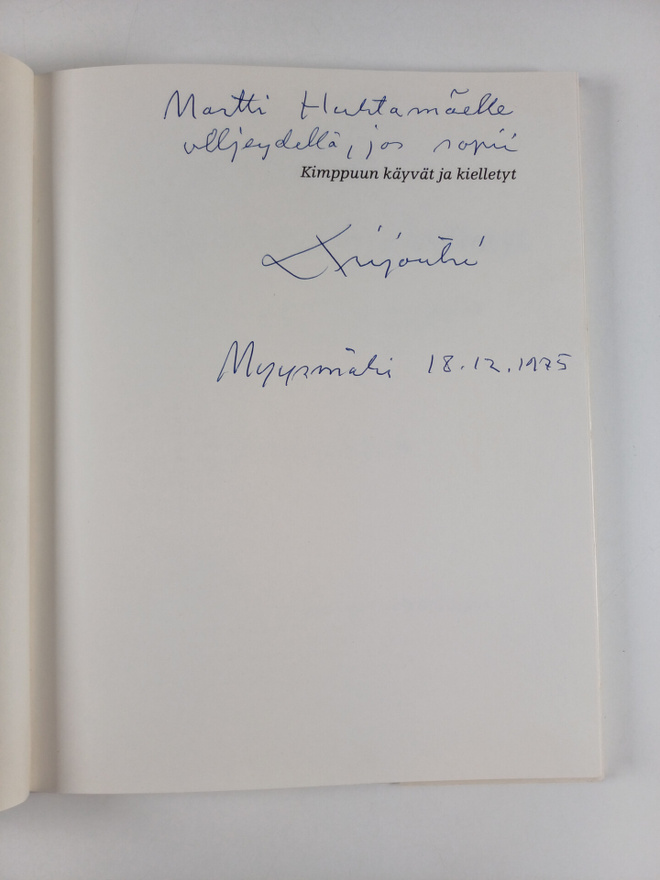 Martti Huhtamäelle
ylljeydellä, jos sopii
Kimppuun käyvät ja kielletyt
Myyrmäki 18.12.1975